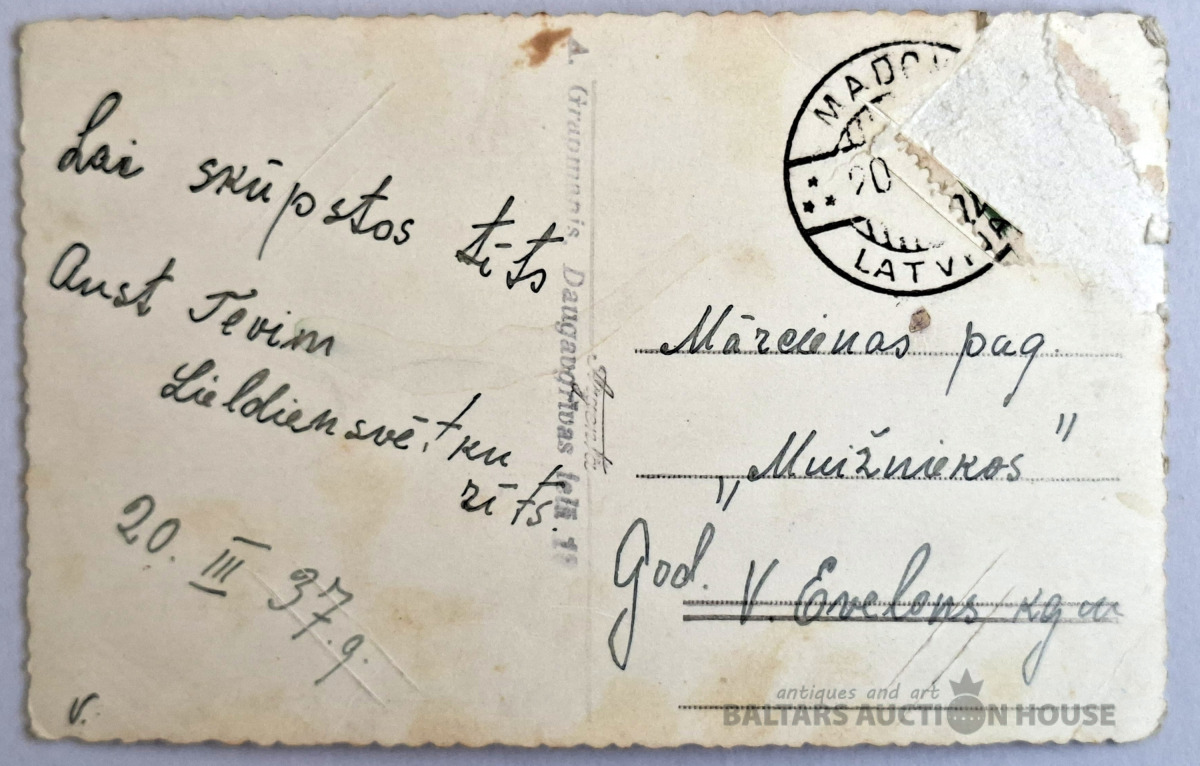 Lai skūpstos tīts
Aust Tevim
Lieldiensvētku
rīts.
20. III 37.g.
V.
A. Daugavgrīvas ielā
MADO
20
LATVI
Mārcienas pag.
„Muižniekos"
God. V. kgm
antiques and art
BALTARS AUCTION HOUSE